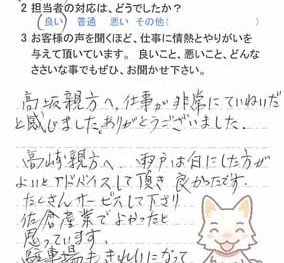 2 担当者の対応は、どうでしたか？
（良い） 普通 悪い その他（ ）
3 お客様の声を聞くほど、仕事に情熱とやりがいを
与えて頂いています。 良いこと、悪いこと、どんな
ささいな事でもぜひ、お聞かせ下さい。
高坂親方へ。仕事が非常にていねいだ
と感じました。ありがとうございました。
高崎親方へ 雨戸は白にした方が
よいとアドバイスして頂き良かったです。
たくさんサービスして下さり
佐倉産業でよかったと
思っています。
駐車場もきれいになって